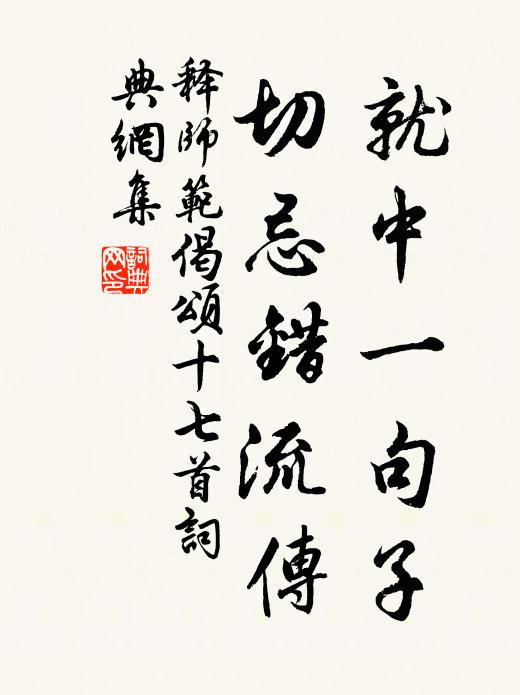 就中一句子
切忌錯流傳
释師範偈頌十七首詞
典網集
詞典网印